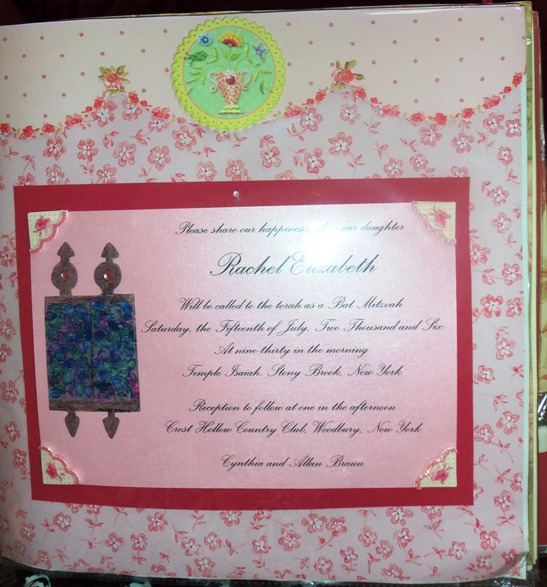 Please share our happiness when our daughter
Rachel Elizabeth
Will be called to the torah as a Bat Mitzvah
Saturday, the Fifteenth of July, Two Thousand and Six
At nine thirty in the morning
Temple Isaiah, Stony Brook, New York
Reception to follow at one in the afternoon
Crest Hollow Country Club, Woodbury, New York
Cynthia and Allan Braun